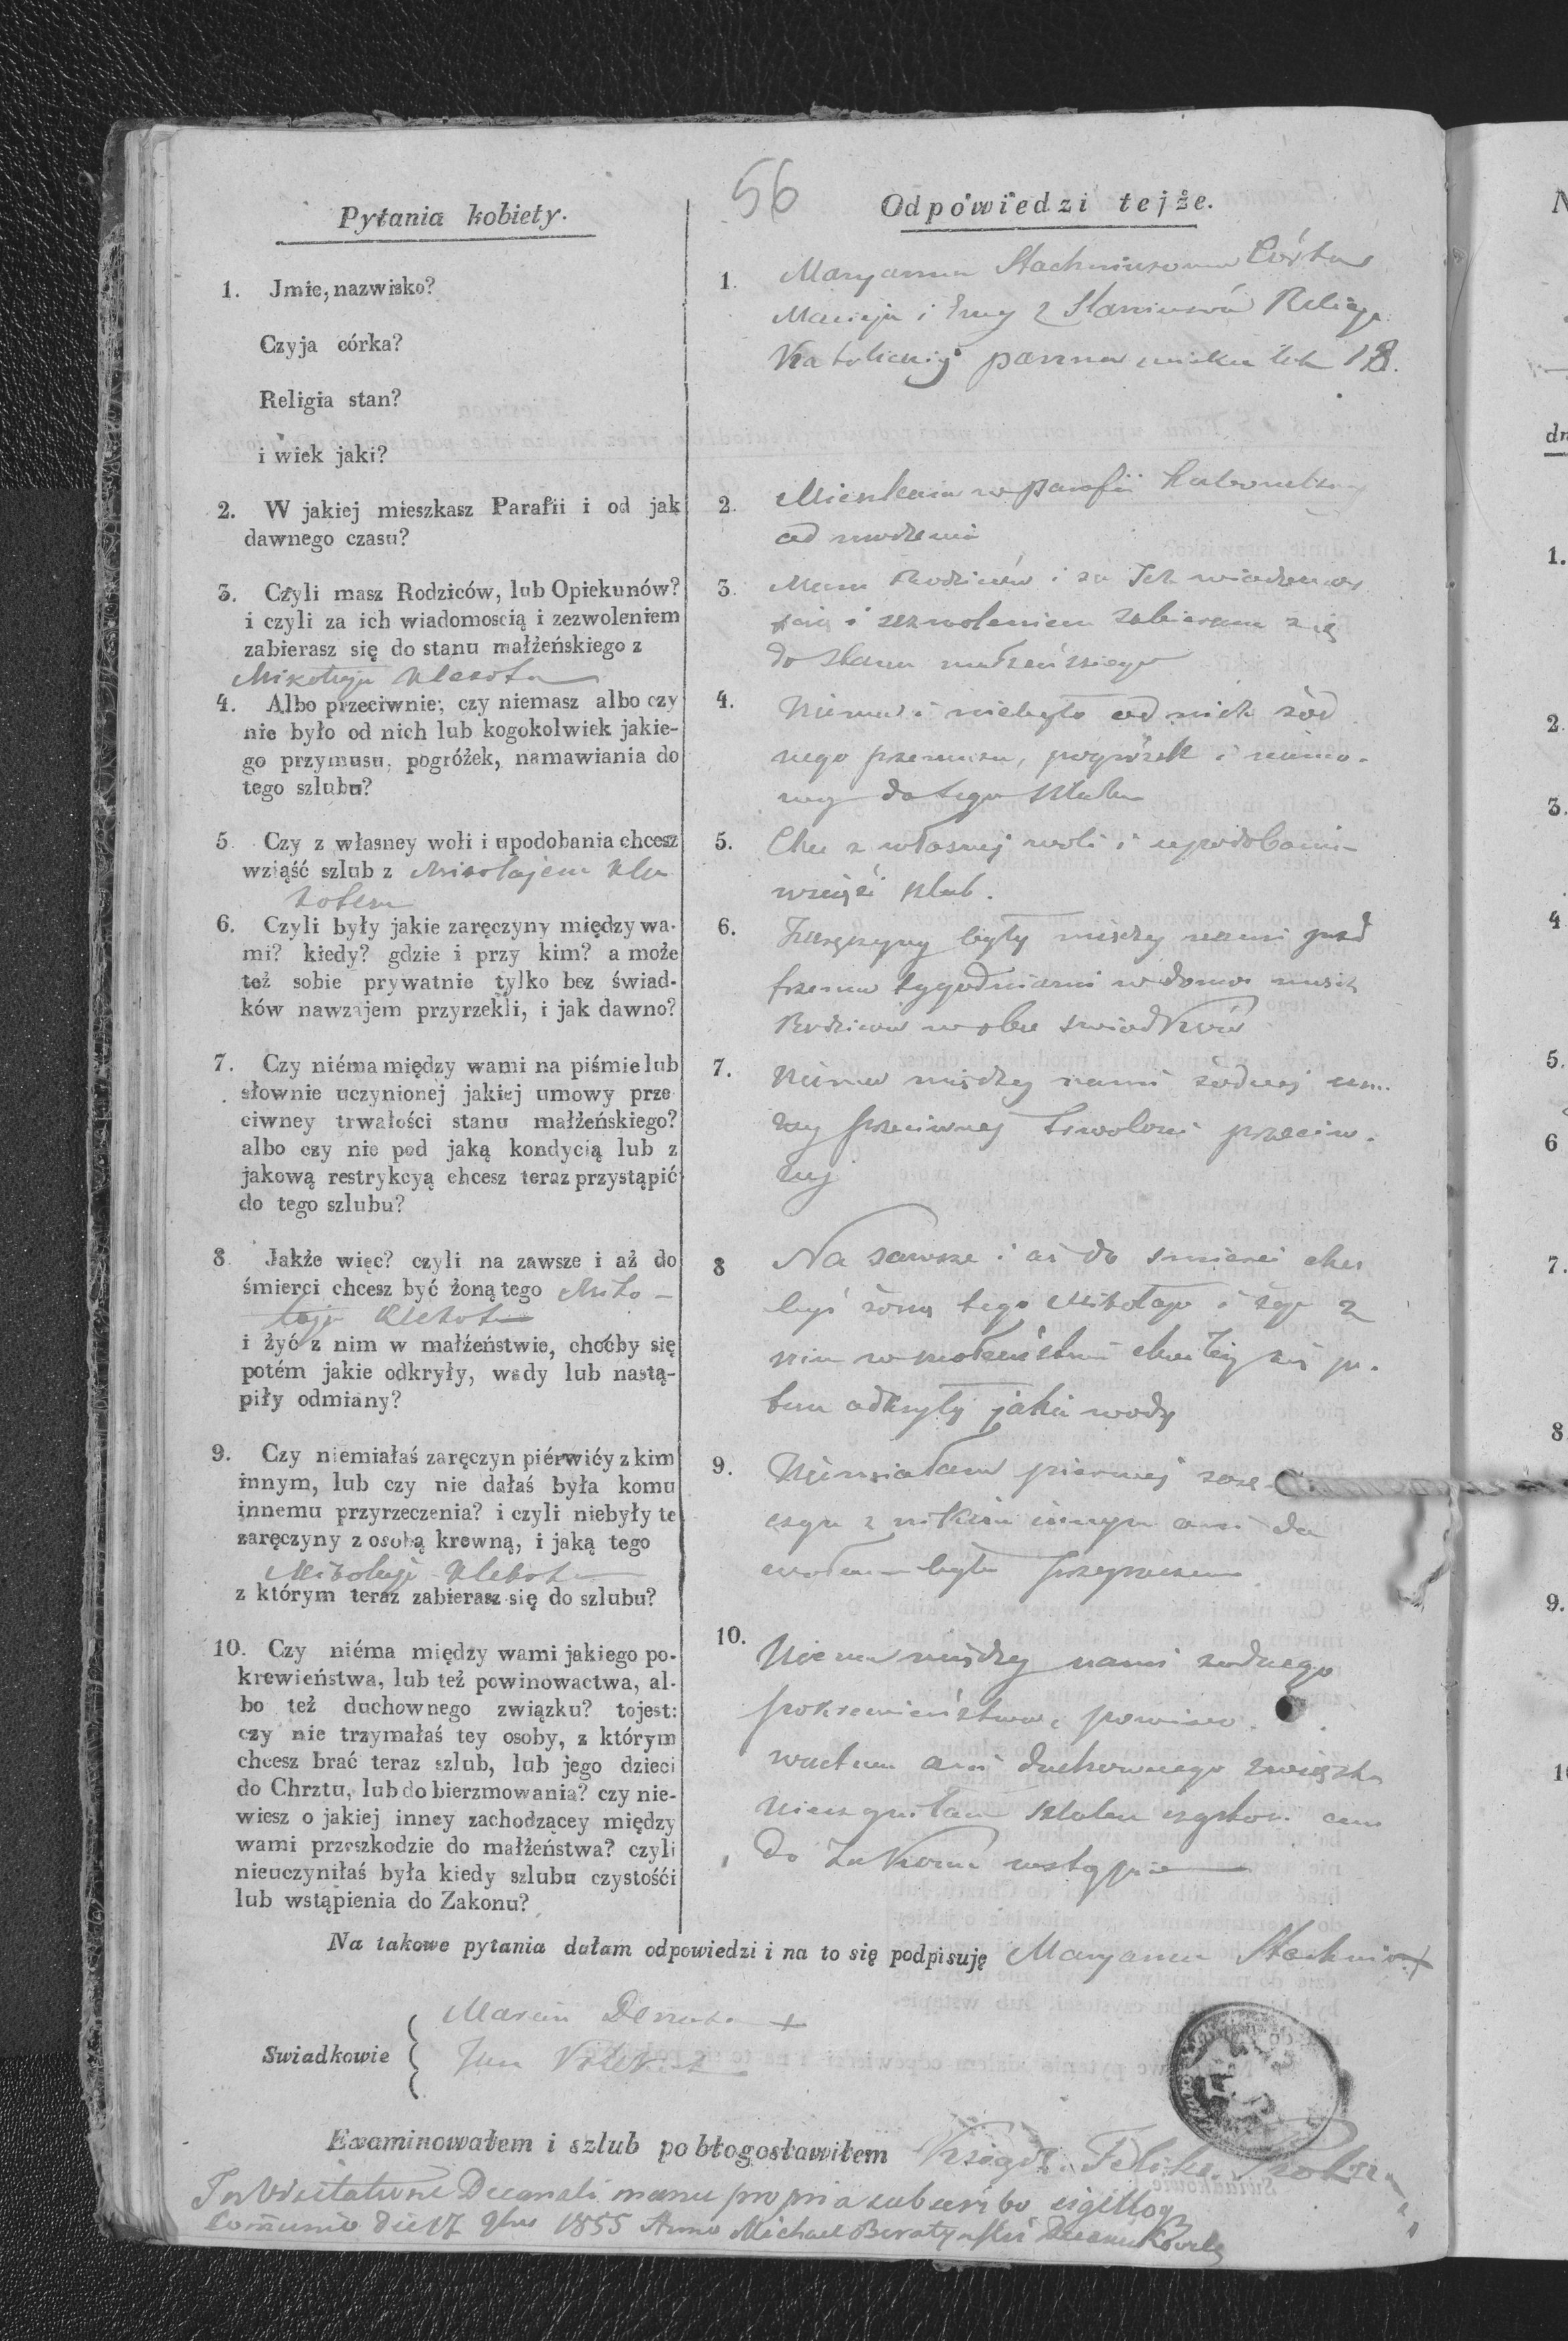 56
Pytania kobiety.
1. Jmie, nazwisko?
Czyja córka?
Religia stan?
i wiek jaki?
2. W jakiej mieszkasz Parafii i od jak
dawnego czasu?
3. Czyli masz Rodziców, lub Opiekunów?
i czyli za ich wiadomością i zezwoleniem
zabierasz się do stanu małżeńskiego z
Mikołaja Klekota
4. Albo przeciwnie, czy niemasz albo czy
nie było od nich lub kogokolwiek jakie-
go przymusu, pogróżek, namawiania do
tego szlubu?
5. Czy z własney woli i upodobania chcesz
wziąść szlub z Mikołajem Kle
kotem
6. Czyli były jakie zaręczyny między wa-
mi? kiedy? gdzie i przy kim? a może
też sobie prywatnie tylko bez świad-
ków nawzajem przyrzekli, i jak dawno?
7. Czy niéma między wami na piśmie lub
słownie uczynionej jakiej umowy prze
ciwney trwałości stanu małżeńskiego?
albo czy nie pod jaką kondycią lub z
jakową restrykcyą chcesz teraz przystąpić
do tego szlubu?
8. Jakże więc? czyli na zawsze i aż do
śmierci chcesz być żoną tego Miko-
łaja Klekota
i żyć z nim w małżeństwie, choćby się
potém jakie odkryły, wady lub nastą-
piły odmiany?
9. Czy niemiałaś zaręczyn piérwićy z kim
innym, lub czy nie dałaś była komu
innemu przyrzeczenia? i czyli niebyły te
zaręczyny z osobą krewną, i jaką tego
Mikołaja Klekota
z którym teraz zabierasz się do szlubu?
10. Czy niéma między wami jakiego po-
krewieństwa, lub też powinowactwa, al-
bo też duchownego związku? tojest:
czy nie trzymałaś tey osoby, z którym
chcesz brać teraz szlub, lub jego dzieci
do Chrztu, lub do bierzmowania? czy nie-
wiesz o jakiej inney zachodzącey między
wami przeszkodzie do małżeństwa? czyli
nieuczyniłaś była kiedy szlubu czystośći
lub wstąpienia do Zakonu?
Odpowiedzi tejże.
1. Maryanna Córka
Macieja i z Religii
Katolickiej panna wieku lat 18.
2. Mieszkam w parafii
od urodzenia
3. Mam Rodziców i za Ich wiadomo
ścią i zezwoleniem zabieram się
do stanu małżeńskiego
4. Niema i niebyło od nich żod
nego przymusu, pogróżek i namo-
wy do tego szlubu
5. Chcę z własnej woli i upodobania
wziąść szlub.
6. Zaręczyny były między nami przed
trzema tygodniami w domu moich
Rodziców w obec świadków
7. Niema między nami żodnej um.
wy przeciwnej przeciw.
nej
8 Na zawsze i aż do śmierci chcę
być żoną tego Mikołaja i żyć z
nim w małżeństwie choćby się po
tem odkryły jakie wady
9. Niemiałam pierwej zarę-
czyn z nikim innym ani da
była
10. Niema między nami żodnego
pokrewieństwa, powino.
wactwa ani duchownego związku
szlubu czystości ani
do Zakonu wstąpienia
Na takowe pytania dałam odpowiedzi i na to się podpisuję Maryanna +
Swiadkowie
Marcin +
Jan
Examinowałem i szlub pobłogosławiłem Ksiądz Felix
In Visitatione Decanali manu propria subscribo sigilloq
communio die 17 9bris 1855 Anno Michael